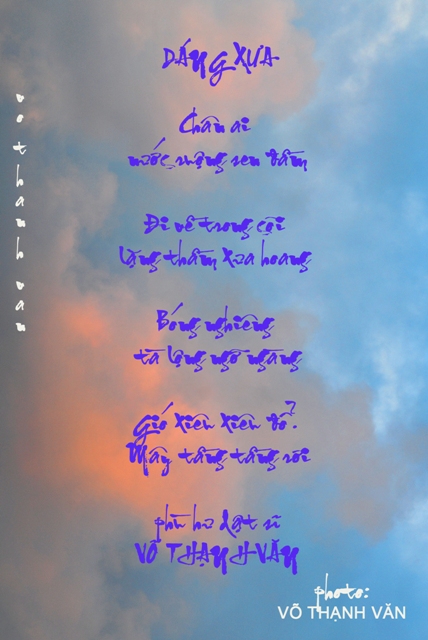 DÁNG XƯA
Chân ai
nước rụng sen đầm
Đi về trong cõi
lặng thầm xưa hoang
Bóng nghiêng
tà ngỡ ngàng
Gió xiên xiên đổ?
Mây tầng tầng rơi
phù hư dật sĩ
VÕ THẠNH VĂN
vo thanh van
photo:
VÕ THẠNH VĂN